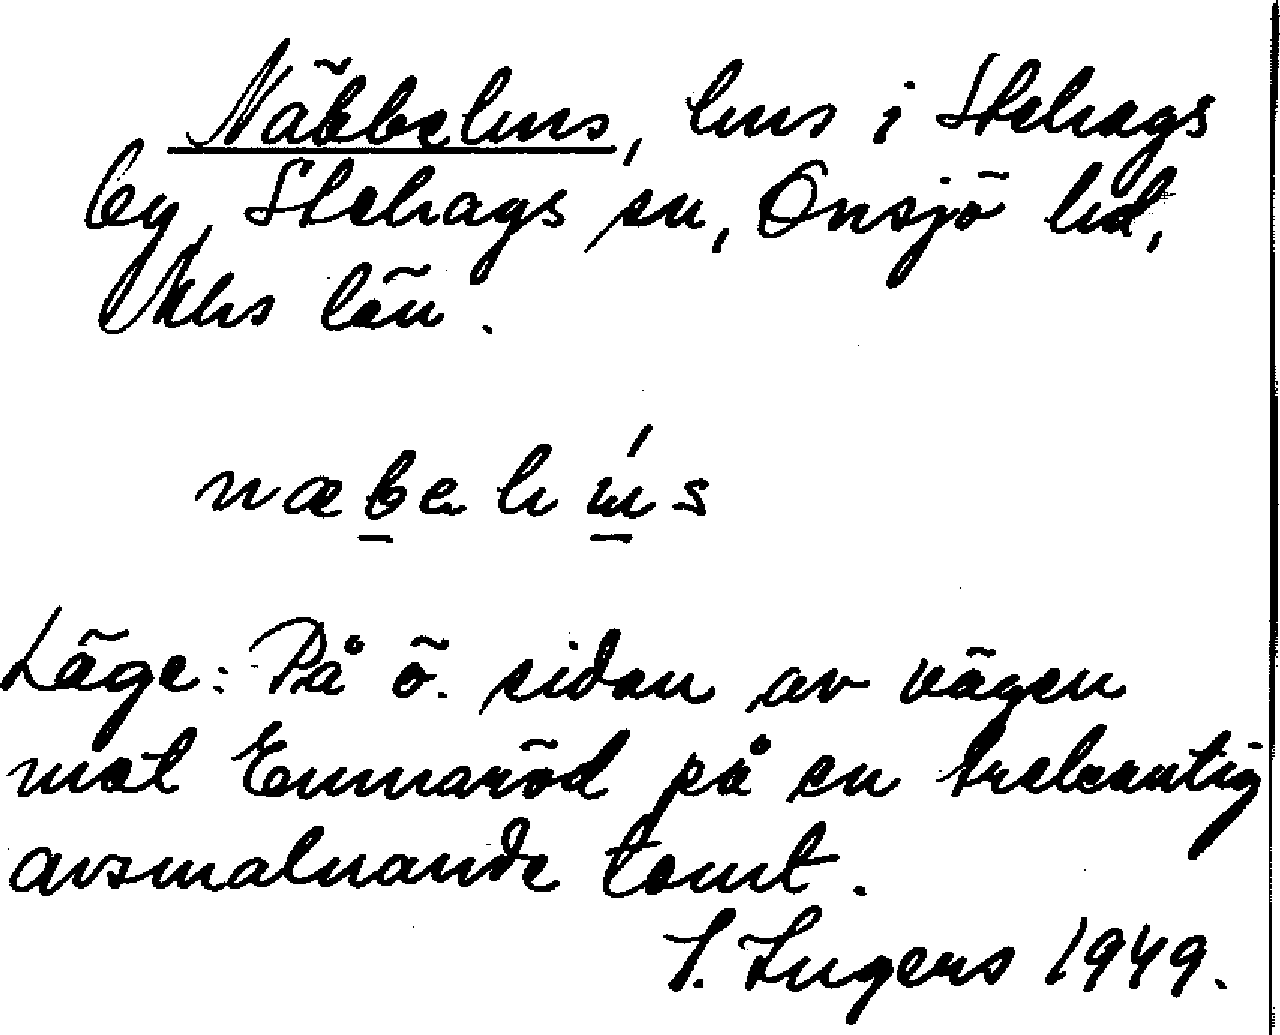 Näbbehus, hus i Stehags
by, Stehags sn, Onsjö hd,
Mhs län.
næbehús
Läge: På ö. sidan av vägen
mot Ennaröd på en trekantig
avsmalnande tomt.
S. Ingers 1949.